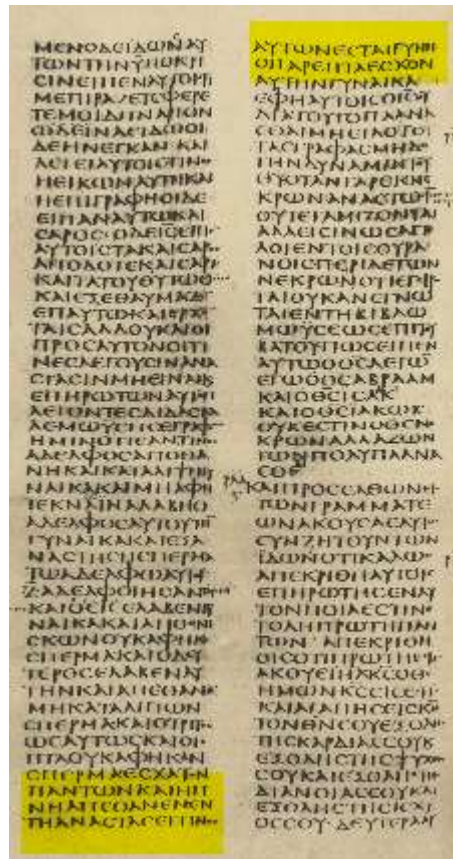 ΜΕΝΟΔΕΙΔΩΝΑΥ
ΤΩΝΤΗΝΥΠΟΚΡΙ
ϹΙΝΕΙΠΕΝΑΥΤΟΙϹΤΙ
ΜΕΠΙΡΑΖΕΤΕΦΕΡΕ
ΤΕΜΟΙΔΗΝΑΡΙΟΝ
ΩΔΕΙΝΑΕΙΔΩΟΙ
ΔΕΗΝΕΓΚΑΝΚΑΙ
ΛΕΓΕΙΑΥΤΟΙϹΤΙΝΟϹ
ΗΕΙΚΩΝΑΥΤΗΚΑΙ
ΗΕΠΙΓΡΑΦΗΟΙΔΕ
ΕΙΠΑΝΑΥΤΩΚΑΙ
ϹΑΡΟϹΟΔΕΙϹΕΙΠΕ
ΑΥΤΟΙϹΤΑΚΑΙϹΑΡΟϹ
ΑΠΟΔΟΤΕΚΑΙϹΑΡΙ
ΚΑΙΤΑΤΟΥΘΥΤΩΘΩ
ΚΑΙΕΞΕΘΑΥΜΑΖΟΝ
ΕΠΑΥΤΩΚΑΙΕΡΧΟΝ
ΤΑΙϹΑΔΔΟΥΚΑΙΟΙ
ΠΡΟϹΑΥΤΟΝΟΙΤΙ
ΝΕϹΛΕΓΟΥϹΙΝΑΝΑ
ϹΤΑϹΙΝΜΗΕΙΝΑΙΚΑΙ
ΕΠΗΡΩΤΩΝΑΥΤΟΝ
ΛΕΓΟΝΤΕϹΔΙΔΑϹΚΑ
ΛΕΜΩΥϹΗϹΕΓΡΑΨΕ
ΗΜΙΝΟΤΙΕΑΝΤΙΝΟϹ
ΑΔΕΛΦΟϹΑΠΟΘΑ
ΝΗΚΑΙΚΑΤΑΛΙΠΗΓΥ
ΝΑΙΚΑΚΑΙΜΗΑΦΗ
ΤΕΚΝΑΙΝΑΛΑΒΗΟ
ΑΔΕΛΦΟϹΑΥΤΟΥΤΗΝ
ΓΥΝΑΙΚΑΚΑΙΕΞΑ
ΝΑϹΤΗϹΗϹΠΕΡΜΑ
ΤΩΑΔΕΛΦΩΑΥΤΟΥ
Ζ ΑΔΕΛΦΟΙΗϹΑΝ
ΚΑΙΟΕΙϹΕΛΑΒΕΝΓΥ
ΝΑΙΚΑΚΑΙΑΠΟΘΝΗ
ϹΚΩΝΟΥΚΑΦΗΚΕ
ϹΠΕΡΜΑΚΑΙΟΔΕΥ
ΤΕΡΟϹΕΛΑΒΕΝΑΥ
ΤΗΝΚΑΙΑΠΕΘΑΝΕ
ΜΗΚΑΤΑΛΙΠΩΝ
ϹΠΕΡΜΑΚΑΙΟΤΡΙΤΟϹ
ΩϹΑΥΤΩϹΚΑΙΟΙ
ΠΤΑΟΥΚΑΦΗΚΑΝ
ϹΠΕΡΜΑΕϹΧΑΤΟΝ
ΠΑΝΤΩΝΚΑΙΗΓΥ
ΝΗΑΠΕΘΑΝΕΝΕΝ
ΤΗΑΝΑϹΤΑϹΕΙΤΙΝΟϹ
ΑΥΤΩΝΕϹΤΑΙΓΥΝΗ
ΟΙΓΑΡΕΠΤΑΕϹΧΟΝ
ΑΥΤΗΝΓΥΝΑΙΚΑ
ΕΦΗΑΥΤΟΙϹΟΙϹΟΥ
ΔΙΑΤΟΥΤΟΠΛΑΝΑ
ϹΘΑΙΜΗΕΙΔΟΤΕϹ
ΤΑϹΓΡΑΦΑϹΜΗΔΕ
ΤΗΝΔΥΝΑΜΙΝΤΟΥ
ΘΥΟΤΑΝΓΑΡΕΚΝΕ
ΚΡΩΝΑΝΑϹΤΩϹΙ
ΟΥΤΕΓΑΜΙΖΟΝΤΑΙ
ΑΛΛΕΙϹΙΝΩϹΑΓΓΕ
ΛΟΙΕΝΤΟΙϹΟΥΡΑ
ΝΟΙϹΠΕΡΙΔΕΤΩΝ
ΝΕΚΡΩΝΟΤΙΕΓΕΙΡΟ
ΤΑΙΟΥΚΑΝΕΓΝΩ
ΤΑΙΕΝΤΗΒΙΒΛΩ
ΜΩΥϹΕΩϹΕΠΙΤΟΥ
ΒΑΤΟΥΠΩϹΕΙΠΕΝ
ΑΥΤΩΟΘϹΛΕΓΩ
ΕΓΩΟΘϹΑΒΡΑΑΜ
ΚΑΙΟΘϹΙϹΑΚ
ΚΑΙΟΘϹΙΑΚΩΒ
ΟΥΚΕϹΤΙΝΟΘϹΝΕ
ΚΡΩΝΑΛΛΑΖΩΝ
ΤΩΝΠΟΛΥΠΛΑΝΑ
ϹΘΕ
ΚΑΙΠΡΟϹΕΛΘΩΝΕΙϹ
ΤΩΝΓΡΑΜΜΑΤΕ
ΩΝΑΚΟΥϹΑϹΑΥΤΩ
ϹΥΝΖΗΤΟΥΝΤΩΝ
ΙΔΩΝΟΤΙΚΑΛΩϹ
ΑΠΕΚΡΙΘΗΑΥΤΟΙϹ
ΕΠΗΡΩΤΗϹΕΝΑΥ
ΤΟΝΠΟΙΑΕϹΤΙΝΕΝ
ΤΟΛΗΠΡΩΤΗΠΑΝ
ΤΩΝ ΑΠΕΚΡΙΘΗ
ΟΙϹΟΤΙΠΡΩΤΗΕϹΤΙ
ΑΚΟΥΕΙΗΛΚϹΟΘϹ
ΗΜΩΝΚϹΕΙϹΕϹΤΙ
ΚΑΙΑΓΑΠΗϹΕΙϹΚΝ
ΤΟΝΘΝϹΟΥΕΞΟΛΗϹ
ΤΗϹΚΑΡΔΙΑϹϹΟΥΚ
ΕΞΟΛΗϹΤΗϹΨΥΧΗϹ
ϹΟΥΚΑΙΕΞΟΛΗϹΤΗϹ
ΔΙΑΝΟΙΑϹϹΟΥΚΑΙ
ΕΞΟΛΗϹΤΗϹΙϹΧΥ
ΟϹϹΟΥ ΔΕΥΤΕΡΑΑΥ